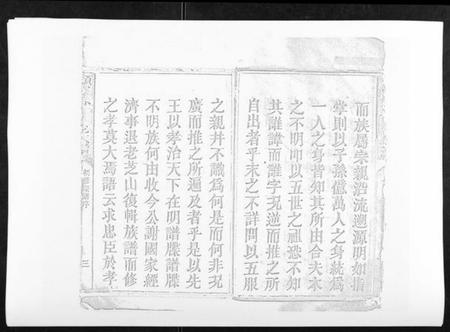 而族屬宗親沿流遡源明如指
掌則以子孫億萬人之身統爲
一人之身皆知其所由合夫本
之不明叩以五世之祖恐不知
其諱而離字況逆而推之所
自出者乎末之不詳問以五服
之親井不識爲何是而何非況
廣而推之所遍及者乎是以先
王以孝治天下在明譜牒譜牒
不明族何由收今公謝國家經
濟事退老芝山復輯族譜而修
之孝莫大焉語云求忠臣於孝
三